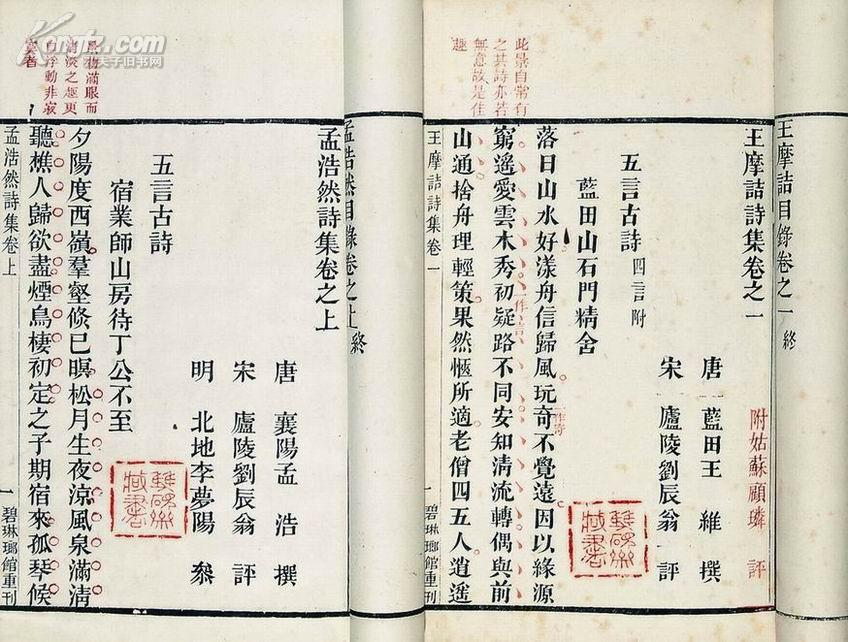 王摩詰目錄卷之一
終
王摩詰詩集卷之一
附姑蘇顧璘 評
唐 藍田王 維 撰
宋 廬陵劉辰翁 評
五言古詩 四言附
藍田山石門精舍
落日山水好漾舟信歸風玩奇不覺遠因以緣源
一作尋
窮遙愛雲木秀初疑路不同安知清流轉偶與前
一作言
山通捨舟理輕策果然愜所適老僧四五人逍遙
此景自常有
之其詩亦若
無意故是佳
趣
王摩詰詩集 卷一
一 碧琳瑯館重刊
孟浩然目錄卷之上
終
孟浩然詩集卷之上
唐 襄陽孟 浩 撰
宋 廬陵劉辰翁 評
明 北地李夢陽 參
五言古詩
宿業師山房待丁公不至
夕陽度西嶺羣壑倏已暝松月生夜涼風泉滿清
聽樵人歸欲盡煙鳥棲初定之子期宿來孤琴候
景物滿眼而
清淡之趣更
自浮動非寂
寞者
孟浩然詩集 卷上
一 碧琳瑯館重刊
藏書
藏書
夫子旧书网